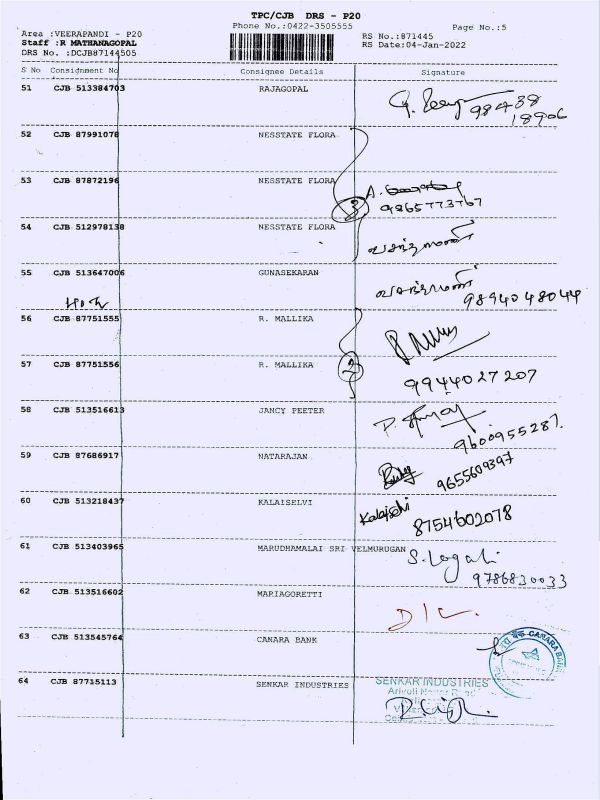 TPC/CJB DRS - P20
Phone No.:0422-3505555
Page No.:5
Area :VEERAPANDI - P20
Staff :R MATHANAGOPAL
DRS No. :DCJB87144505
RS No.:871445
RS Date:04-Jan-2022
S No Consignment No Consignee Details Signature
51 CJB 513384703 RAJAGOPAL
98438
18906
52 CJB 87991078 NESSTATE FLORA
53 CJB 87872196 NESSTATE FLORA
3
9865773767
54 CJB 512978138 NESSTATE FLORA
வசந்தாமணி
55 CJB 513647006 GUNASEKARAN
வசந்தாமணி
9894048044
56 CJB 87751555 R. MALLIKA
57 CJB 87751556 R. MALLIKA
2
9944027207
58 CJB 513516613 JANCY PEETER
9600955287.
59 CJB 87686917 NATARAJAN
9655609397
60 CJB 513218437 KALAISELVI
Kalaiselvi
8754602078
61 CJB 513403965 MARUDHAMALAI SRI VELMURUGAN
S. Logali
9786830033
62 CJB 513516602 MARIAGORETTI
D/C.
63 CJB 513545764 CANARA BANK
CANARA BANK
64 CJB 87715113 SENKAR INDUSTRIES
SENKAR INDUSTRIES